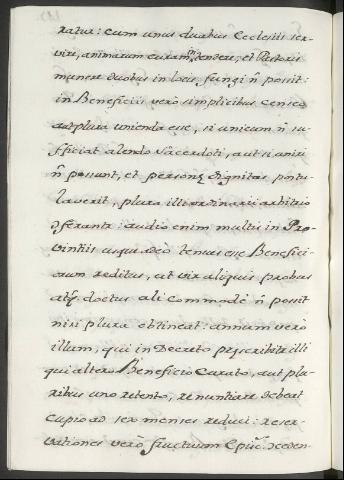 ratur: cum unus duabus Ecclesiis ser-
vire, animarum curam intendere, et Pastoris
munere duobus in locis fungi ñ possit:
in Beneficiis verò simplicibus censeo
aut plura unienda esse, si unicum ñ su-
fficiat alendo Sacerdoti, aut si uniri
ñ possunt, et personę dignitas postu-
laverit, plura illi ordinarii arbitrio
ꝯferantr: audio enim multis in Pro-
vintiis usque adeò tenues esse Benefici-
orum reditus, ut vix aliquis probus
atq. doctus ali commodè ñ possit
nisi plura obtineat: annum verò
illum, qui in Decreto pręscribitr illi
qui altero Beneficio Curato, aut plu-
ribus uno retento, renuntiare debeat
cupio ad sex menses reduci: reser-
vationes verò fructuum